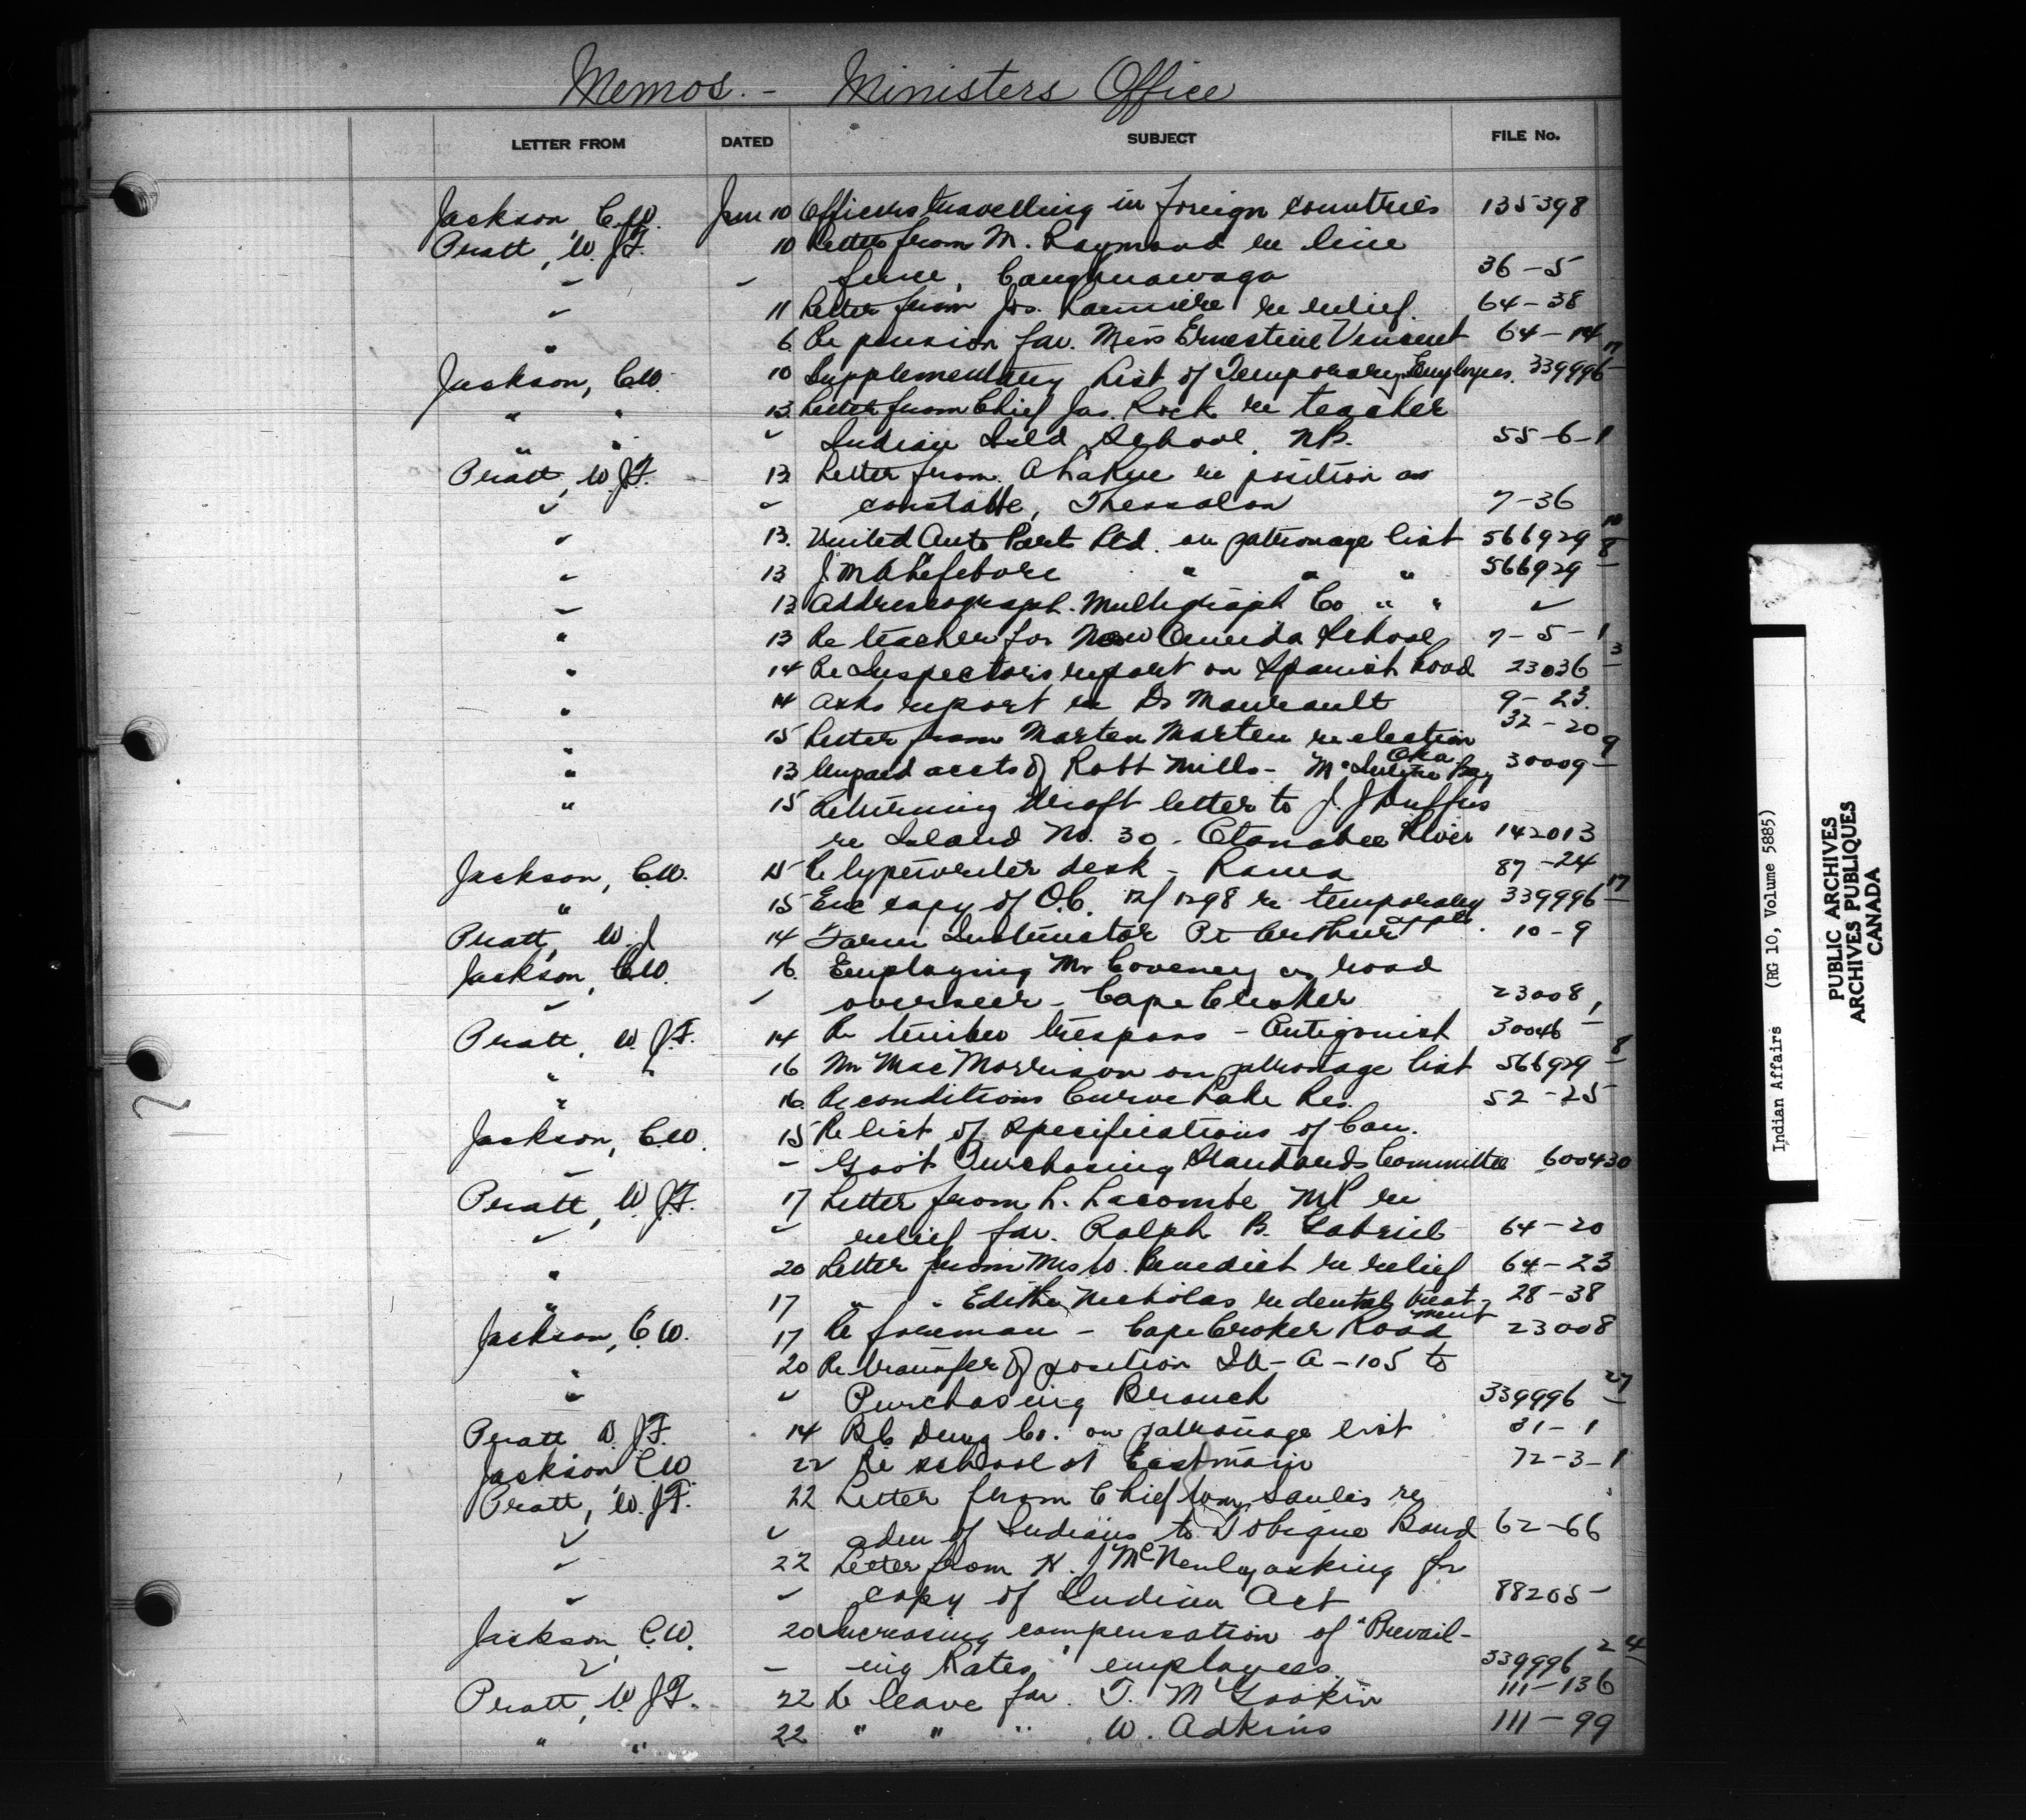 Memos. - Ministers Office
LETTER FROM DATED SUBJECT FILE No.
Jackson, C.W. Jan 10 Officers travelling in foreign countries 135398
Pratt, W. J.F. 10 Letter from M. Raymond re line
" " fence, Caughnawaga 36-5
" 11 Letter from Jos. re relief. 64-38
" 6 Re pension for Miss Ernestine Vincent 64-14
Jackson, C.W. 10 Supplementary List of Temporary Employees. 339996 17
" " 13 Letter from Chief Jas. Rock re teacher
" " " Indian Isld School, N.B. 55-6-1
Pratt, W.J.F. 13 Letter from A LaRue re position as
" " constable, Thessalon 7-36
" 13. United Auto Parts Ltd. on patronage list 566929 10
" 13 J. M A Lefebvre " " " 566929 8
" 13 Addressograph-Multigraph Co " " "
" 13 Re teacher for New Oneida School 7-5-1
" 14 Re Inspectors report on Spanish Road 23036 3
" 14 Asks report re Dr Manseault 9-23.
" 15 Letter from Marten Marten re election Oka 32-20
" 13 Unpaid accts of Robt Mills - McIntyre Bay 30009 9
" 15 Returning draft letter to J. J Duffus
re Island No. 30 - Otonabee River 142013
Jackson, C.W. 15 Re typewriter desk - Rama 87-24
" 15 Enc copy of O.C. 12/1298 re temporary appts. 339996 17
Pratt, W. J 14 Farm Instructor Pt Arthur 10-9
Jackson, C.W. 16 Employing Mr Coveney as road
" " overseer - Cape Croker 23008
Pratt, W. J.F. 14 Re timber trespass - Antigonish 30046 1
" " 16 Mr MacMorrison on patronage list 566929 8
" 16 Re conditions Curve Lake Res. 52-25
Jackson, C.W. 15 Re list of specifications of Can.
" " Gov't Purchasing Standards Committee 600430
Pratt, W. J.F. 17 Letter from L. Lacombe MP re
" " relief for Ralph B. Gabriel 64-20
" 20 Letter from Mrs W. Benedict re relief 64-23
" 17 " " Edith Nicholas re dental treatment 28-38
Jackson, C.W. 17 Re foreman - Cape Croker Road 23008
" 20 Re transfer of position IA-A-105 to
" " Purchasing Branch 339996 27
Pratt W. J.F. 14 BC Drug Co. on patronage list 31-1
Jackson C.W 22 Re school at Eastmain 72-3-1
Pratt, W. J.F. 22 Letter from Chief Wm Saulis re
" " adm of Indians to Tobique Band 62-66
" 22 Letter from H. J McNenly asking for
" " copy of Indian Act 88205
Jackson, C.W. 20 Increasing compensation of "Prevail-
" " ing Rates" employees 339996 24
Pratt, W J.F. 22 Re leave for T. McGookin 111-136
" " 22 " " " W. Adkins 111-99
Indian Affairs (RG 10, Volume 5885)
PUBLIC ARCHIVES
ARCHIVES PUBLIQUES
CANADA